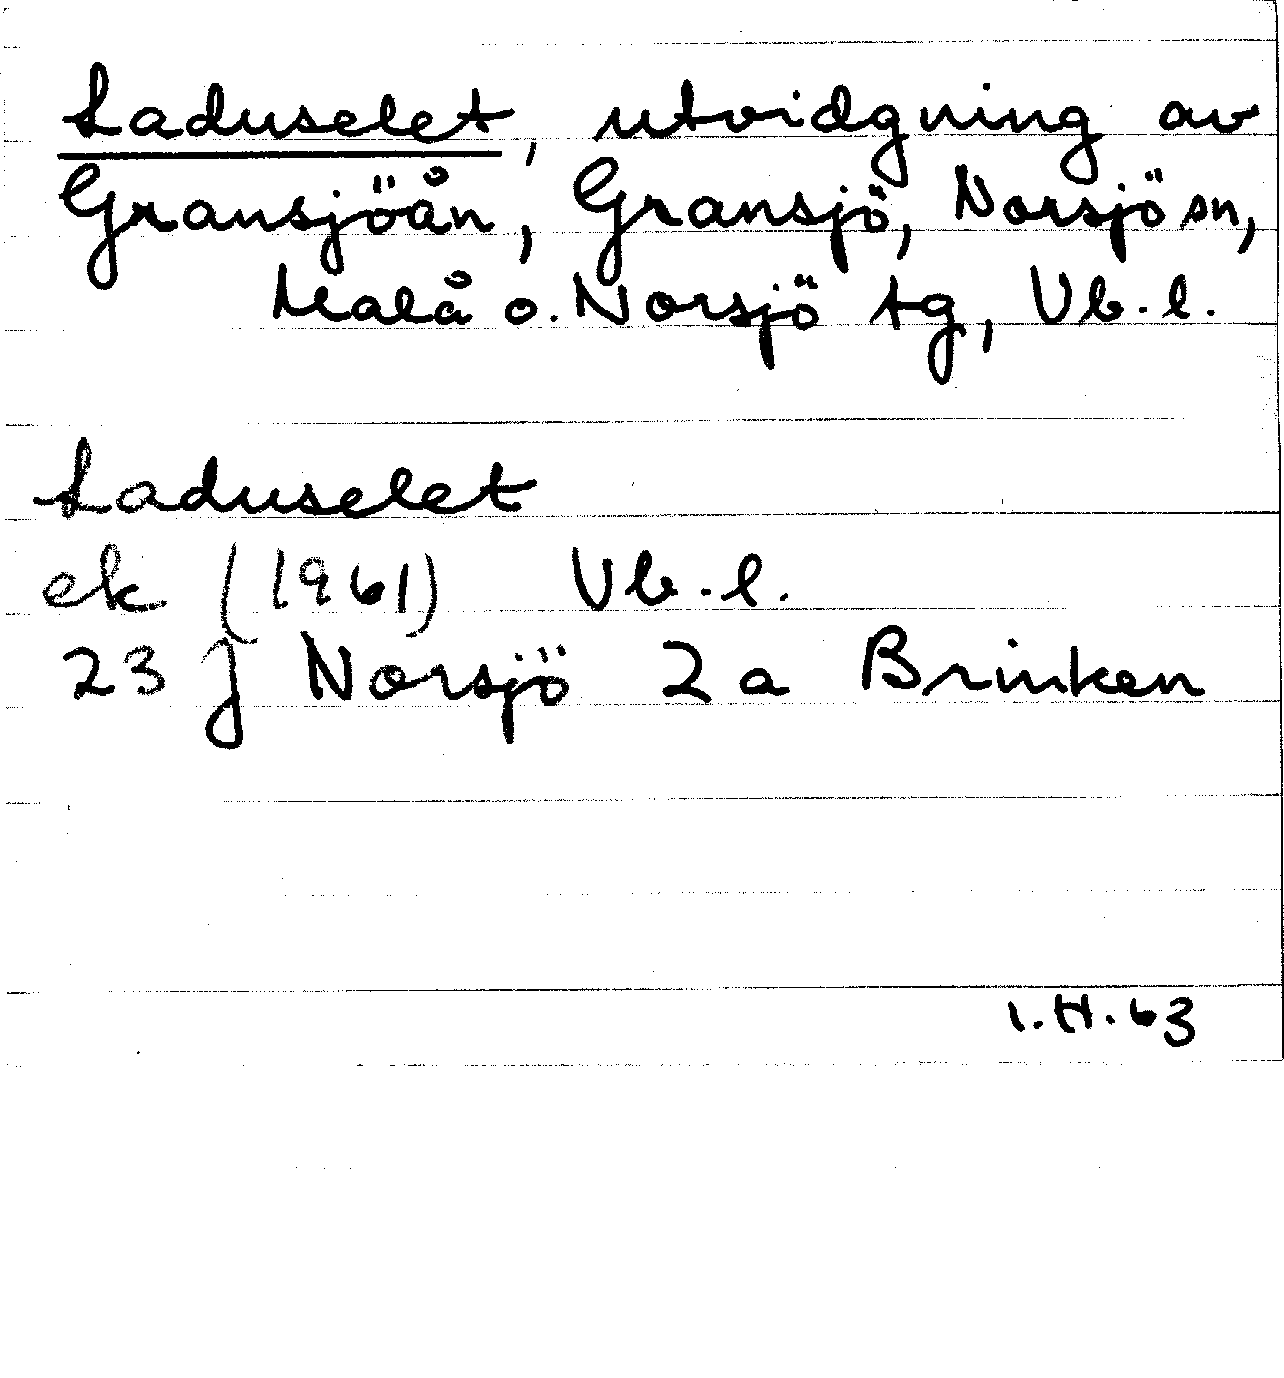 Laduselet, utvidgning av
Gransjöån, Gransjö, Norsjö sn,
Malå o. Norsjö tg, Vb. l.
Laduselet
ek (1961) Vb. l.
23 J Norsjö 2a Brinken
I.H. 63